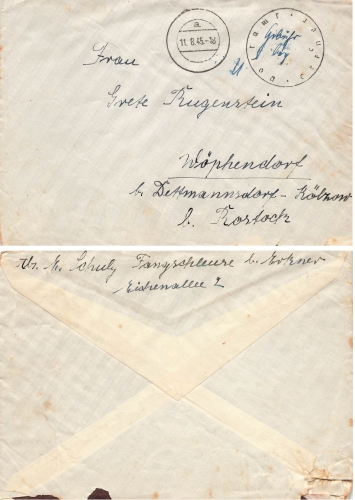 a
11.8.45.-18
Postamt Erkner
Gebühr
bez.
Frau
Grete Rugenstein
Wöpkendorf
b. Dettmannsdorf - Kölzow
b. Rostock
M. Schulz Fangschleuse b. Erkner
Eichenallee 2